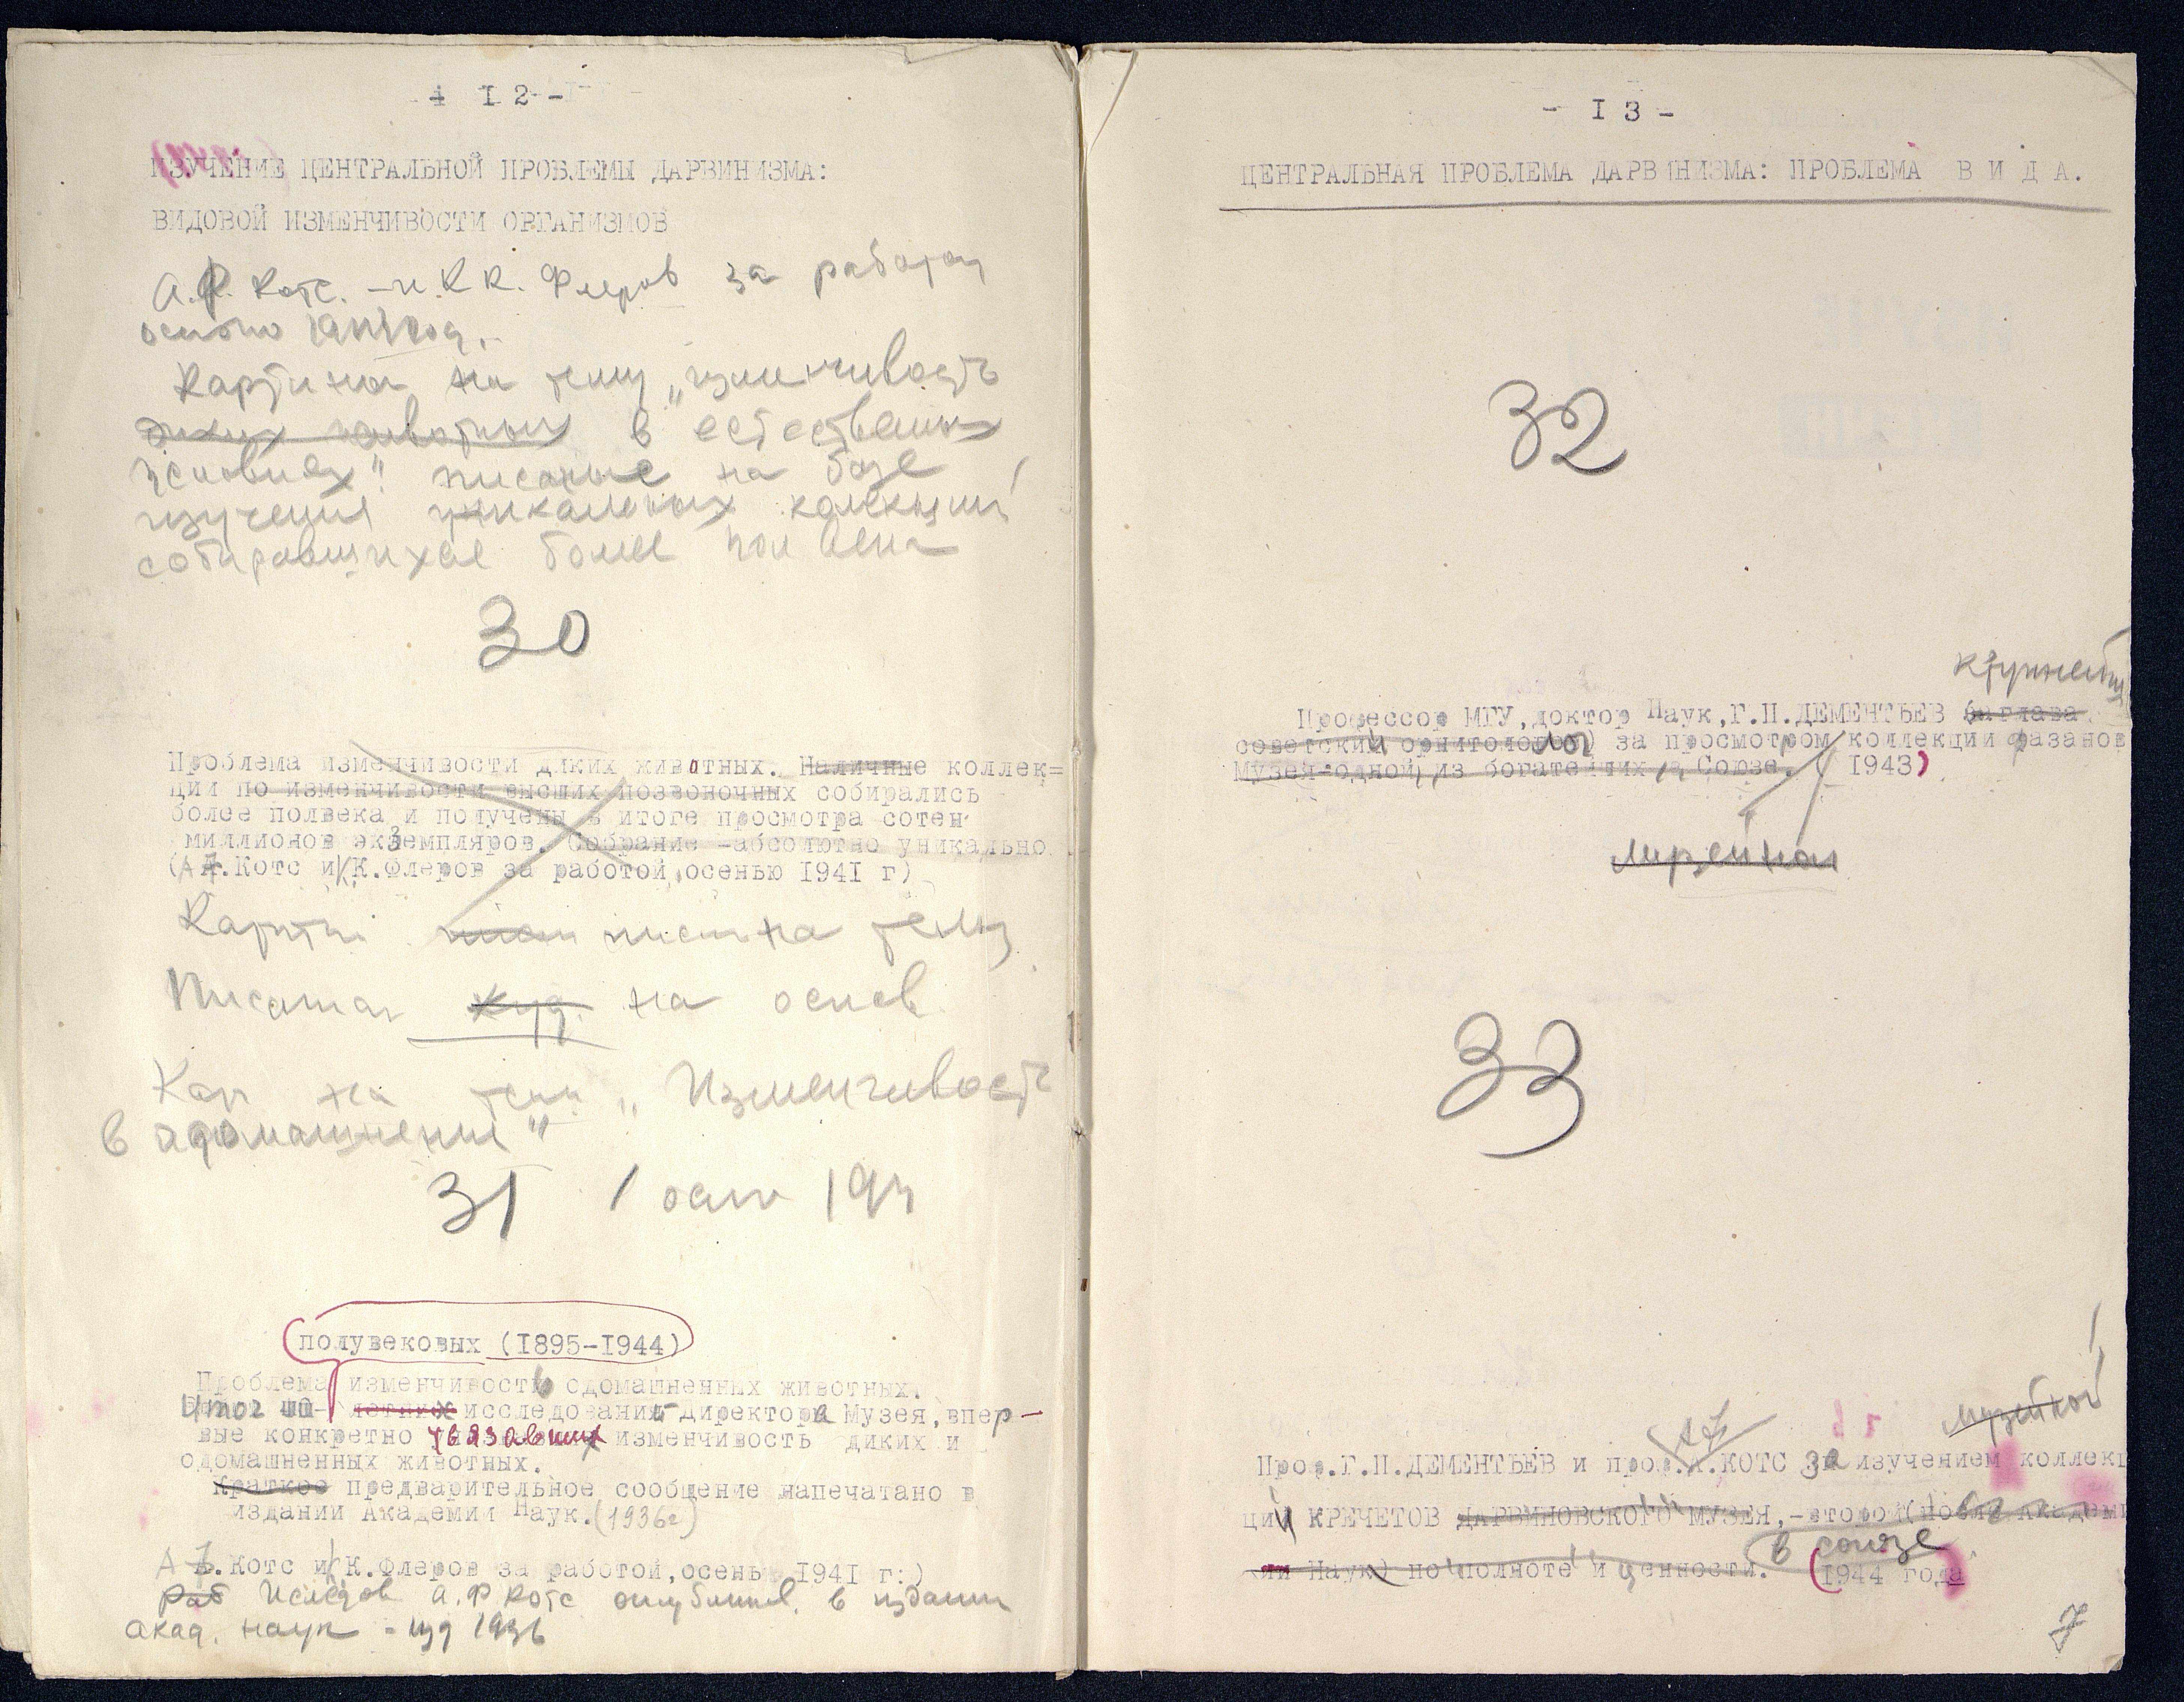 - I2 -
ИЗУЧЕНИЕ ЦЕНТРАЛЬНОЙ ПРОБЛЕМЫ ДАРВИНИЗМА:
ВИДОВОЙ ИЗМЕНЧИВОСТИ ОРГАНИЗМОВ
А.Ф. Котс. - и К К. Флеров за работой
Картина на тему „изменчивость
диких животных в естественных
условиях" писаные на базе
изучения уникальных колекций
собиравшихся более пол века
30
Проблема изменчивости диких животных. Наличные коллек=
ции по изменчивости высших позвоночных собирались
более полвека и получены в итоге просмотра сотен
миллионов экземпляров. Собрание -абсолютно уникально
(АФ.Котс и К.Флеров за работой,осенью 1941 г)
на тему
Писаная на основ
Кар на тему „Изменчивость
в одомашнении"
31
полувековых (I895-I944)
Проблема изменчивость одомашненных животных.
Итог летних исследования Директора Музея,впер-
вые конкретно увязавших изменчивость диких и
одомашненных животных.
Краткое предварительное сообщение напечатано в
издании Академии Наук.(1936г)
АФ.Котс и К.Флеров за работой,осень 1941 г.)
раб Исследов А.Ф Котс опубликов. в издании
акад. наук - 1936
- I 3 -
ЦЕНТРАЛЬНАЯ ПРОБЛЕМА ДАРВИНИЗМА: ПРОБЛЕМА В И Д А.
32
Профессор МГУ,доктор Наук,Г.П.ДЕМЕНТЬЕВ (глава
советский орнитолог) за просмотром коллекции фазанов
Музея-одной из богатейших в Союзе. ( 1943)
музейная
33
АФ
музейной
Проф.Г.П.ДЕМЕНТЬЕВ и проф.А.КОТС за изучением коллек
ций КРЕЧЕТОВ ДАРВИНОВСКОГО МУЗЕЯ,-второй(после Академи
ии Наук) по полноте и ценности. в союзе (1944 года)
7